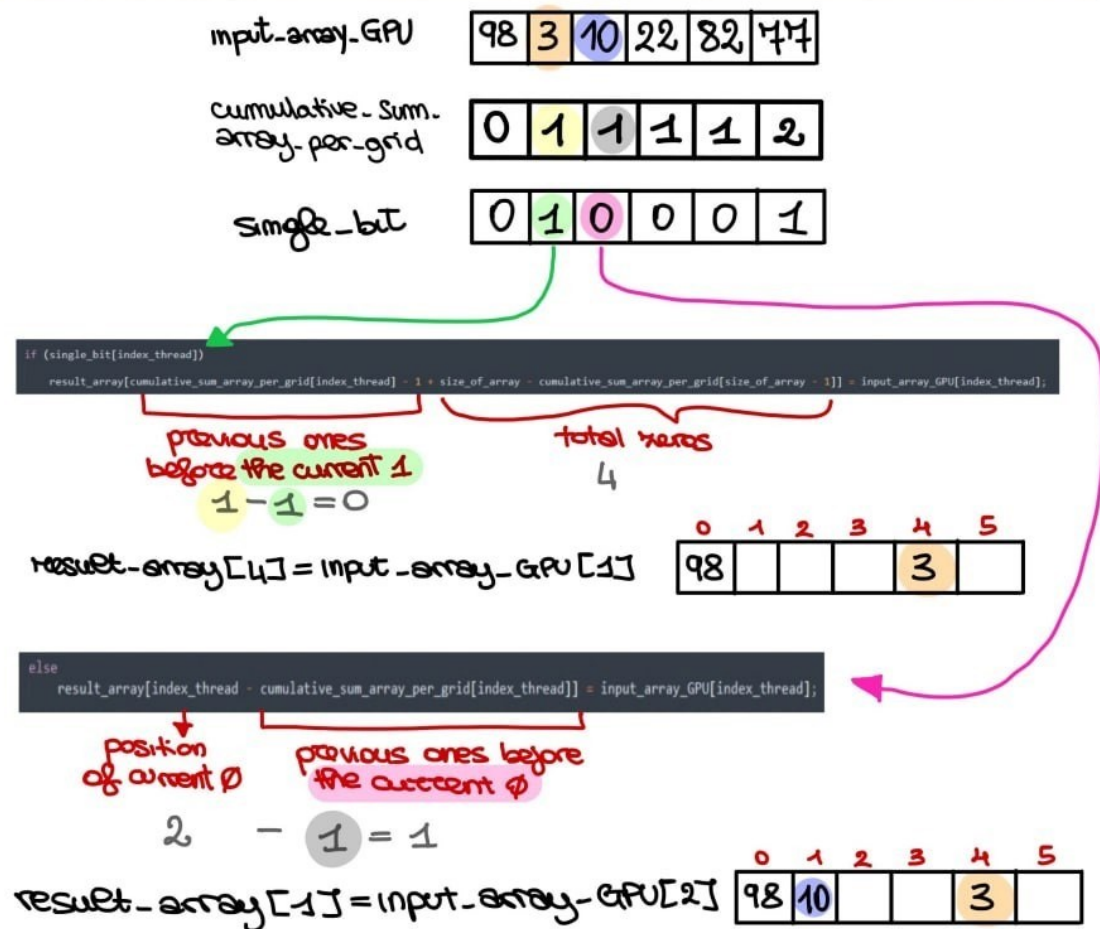 input_array_GPU 98 3 10 22 82 77
cumulative_sum_
array_per_grid 0 1 1 1 1 2
single_bit 0 1 0 0 0 1
if (single_bit[index_thread])
result_array[cumulative_sum_array_per_grid[index_thread] - 1 + size_of_array - cumulative_sum_array_per_grid[size_of_array - 1]] = input_array_GPU[index_thread];
previous ones total zeros
before the current 1 4
1-1=0
0 1 2 3 4 5
result_array[4]=input_array_GPU[1] 98 3
else
result_array[index_thread - cumulative_sum_array_per_grid[index_thread]] = input_array_GPU[index_thread];
position previous ones before
of current 0 the current 0
2 - 1 = 1
0 1 2 3 4 5
result_array[1]=input_array_GPU[2] 98 10 3